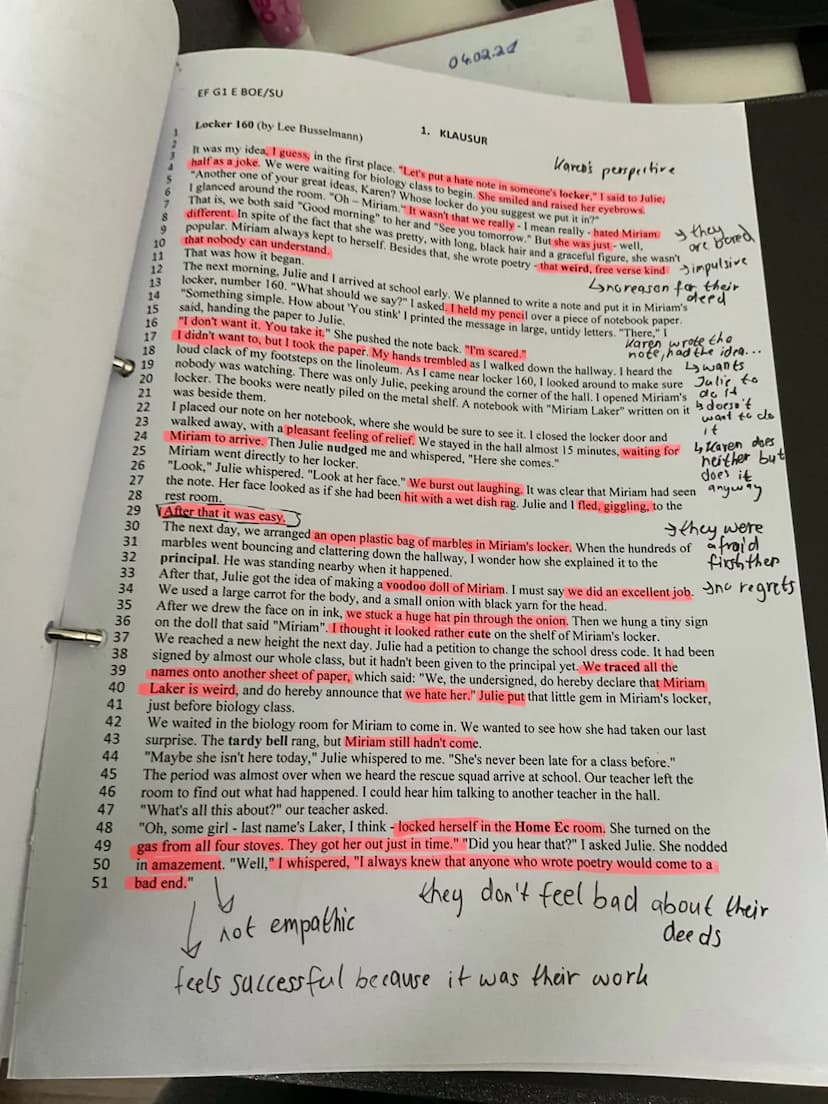 04.02.21
EF G1 E BOE/SU
1. KLAUSUR
1 Locker 160 (by Lee Busselmann)
2
3 It was my idea, I guess, in the first place. "Let's put a hate note in someone's locker," I said to Julie,
4 half as a joke. We were waiting for biology class to begin. She smiled and raised her eyebrows.
5 "Another one of your great ideas, Karen? Whose locker do you suggest we put it in?"
6 I glanced around the room. "Oh – Miriam." It wasn't that we really - I mean really - hated Miriam
7 That is, we both said "Good morning" to her and "See you tomorrow." But she was just - well,
8 different. In spite of the fact that she was pretty, with long, black hair and a graceful figure, she wasn't
9 popular. Miriam always kept to herself. Besides that, she wrote poetry - that weird, free verse kind
10 that nobody can understand.
11 That was how it began.
12 The next morning, Julie and I arrived at school early. We planned to write a note and put it in Miriam's
13 locker, number 160. "What should we say?" I asked. I held my pencil over a piece of notebook paper.
14 "Something simple. How about 'You stink' I printed the message in large, untidy letters. "There," I
15 said, handing the paper to Julie.
16 "I don't want it. You take it." She pushed the note back. "I'm scared."
17 I didn't want to, but I took the paper. My hands trembled as I walked down the hallway. I heard the
18 loud clack of my footsteps on the linoleum. As I came near locker 160, I looked around to make sure
19 nobody was watching. There was only Julie, peeking around the corner of the hall. I opened Miriam's
20 locker. The books were neatly piled on the metal shelf. A notebook with "Miriam Laker" written on it
21 was beside them.
22 I placed our note on her notebook, where she would be sure to see it. I closed the locker door and
23 walked away, with a pleasant feeling of relief. We stayed in the hall almost 15 minutes, waiting for
24 Miriam to arrive. Then Julie nudged me and whispered, "Here she comes."
25 Miriam went directly to her locker.
26 "Look," Julie whispered. "Look at her face." We burst out laughing. It was clear that Miriam had seen
27 the note. Her face looked as if she had been hit with a wet dish rag. Julie and I fled, giggling, to the
28 rest room.
29 After that it was easy.
30 The next day, we arranged an open plastic bag of marbles in Miriam's locker. When the hundreds of
31 marbles went bouncing and clattering down the hallway, I wonder how she explained it to the
32 principal. He was standing nearby when it happened.
33 After that, Julie got the idea of making a voodoo doll of Miriam. I must say we did an excellent job.
34 We used a large carrot for the body, and a small onion with black yarn for the head.
35 After we drew the face on in ink, we stuck a huge hat pin through the onion. Then we hung a tiny sign
36 on the doll that said "Miriam". I thought it looked rather cute on the shelf of Miriam's locker.
37 We reached a new height the next day. Julie had a petition to change the school dress code. It had been
38 signed by almost our whole class, but it hadn't been given to the principal yet. We traced all the
39 names onto another sheet of paper, which said: "We, the undersigned, do hereby declare that Miriam
40 Laker is weird, and do hereby announce that we hate her." Julie put that little gem in Miriam's locker,
41 just before biology class.
42 We waited in the biology room for Miriam to come in. We wanted to see how she had taken our last
43 surprise. The tardy bell rang, but Miriam still hadn't come.
44 "Maybe she isn't here today," Julie whispered to me. "She's never been late for a class before."
45 The period was almost over when we heard the rescue squad arrive at school. Our teacher left the
46 room to find out what had happened. I could hear him talking to another teacher in the hall.
47 "What's all this about?" our teacher asked.
48 "Oh, some girl - last name's Laker, I think - locked herself in the Home Ec room. She turned on the
49 gas from all four stoves. They got her out just in time." "Did you hear that?" I asked Julie. She nodded
50 in amazement. "Well," I whispered, "I always knew that anyone who wrote poetry would come to a
51 bad end."
Karen's perspective
→ they
are bored
→ impulsive
↳ no reason for their
deed
Karen wrote the
note, had the idea...
↳ wants
Julie to
do it
↳ doesn't
want to do
it
↳ Karen does
neither but
does it
anyway
→ they were
afraid
first then
→ no regrets
→ not empathic
they don't feel bad about their
deeds
feels successful because it was their work